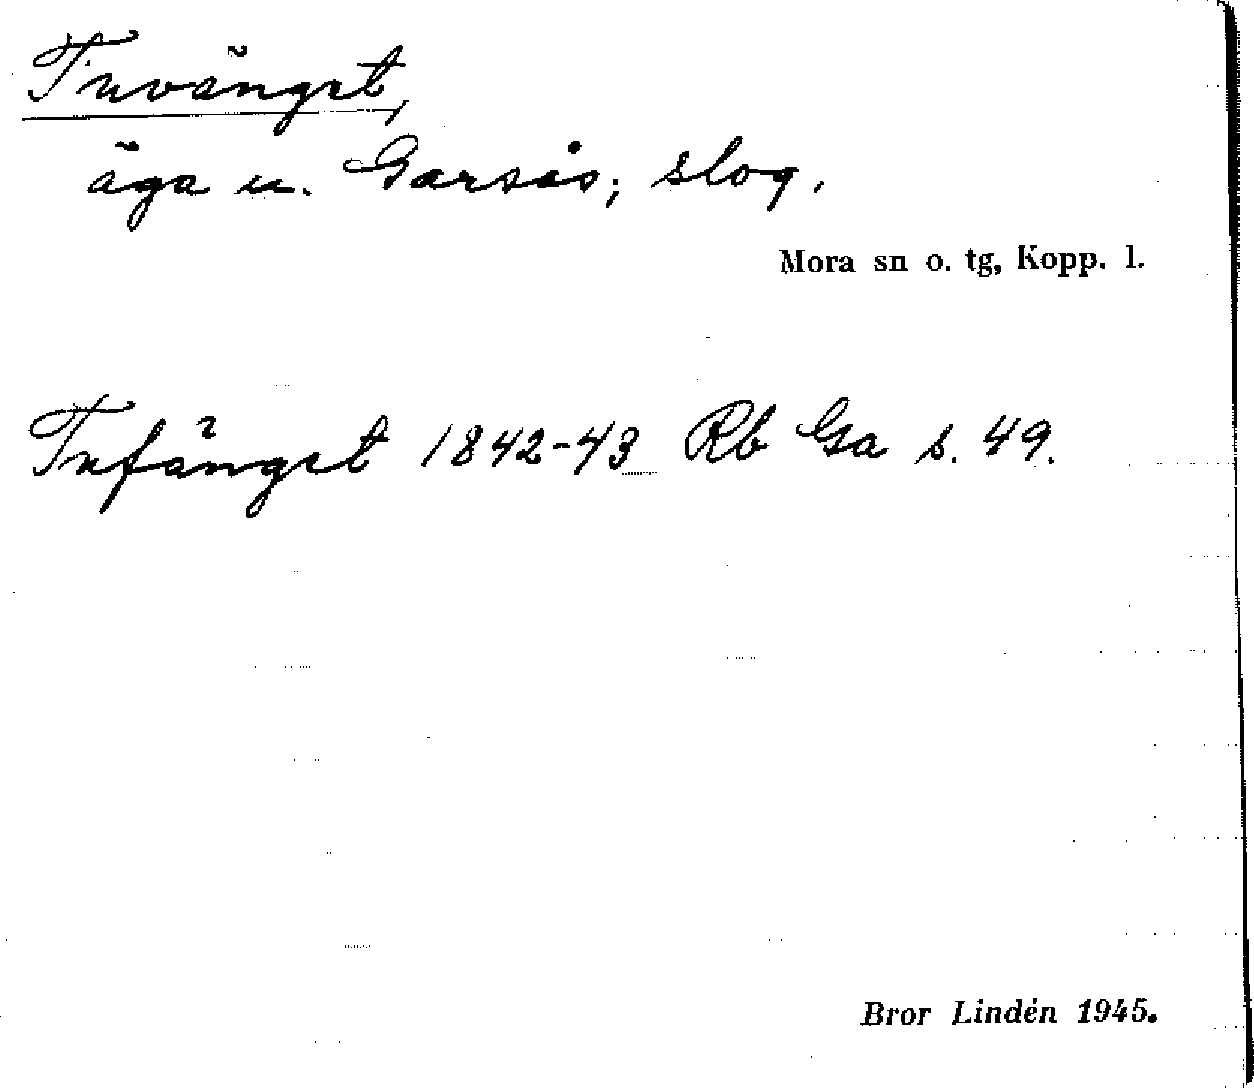 Tuvänget,
äga u. Garsås; slog.
Mora sn o. tg, Kopp. l.
Tufänget 1842-43 Rb Ga s. 49.
Bror Lindén 1945.